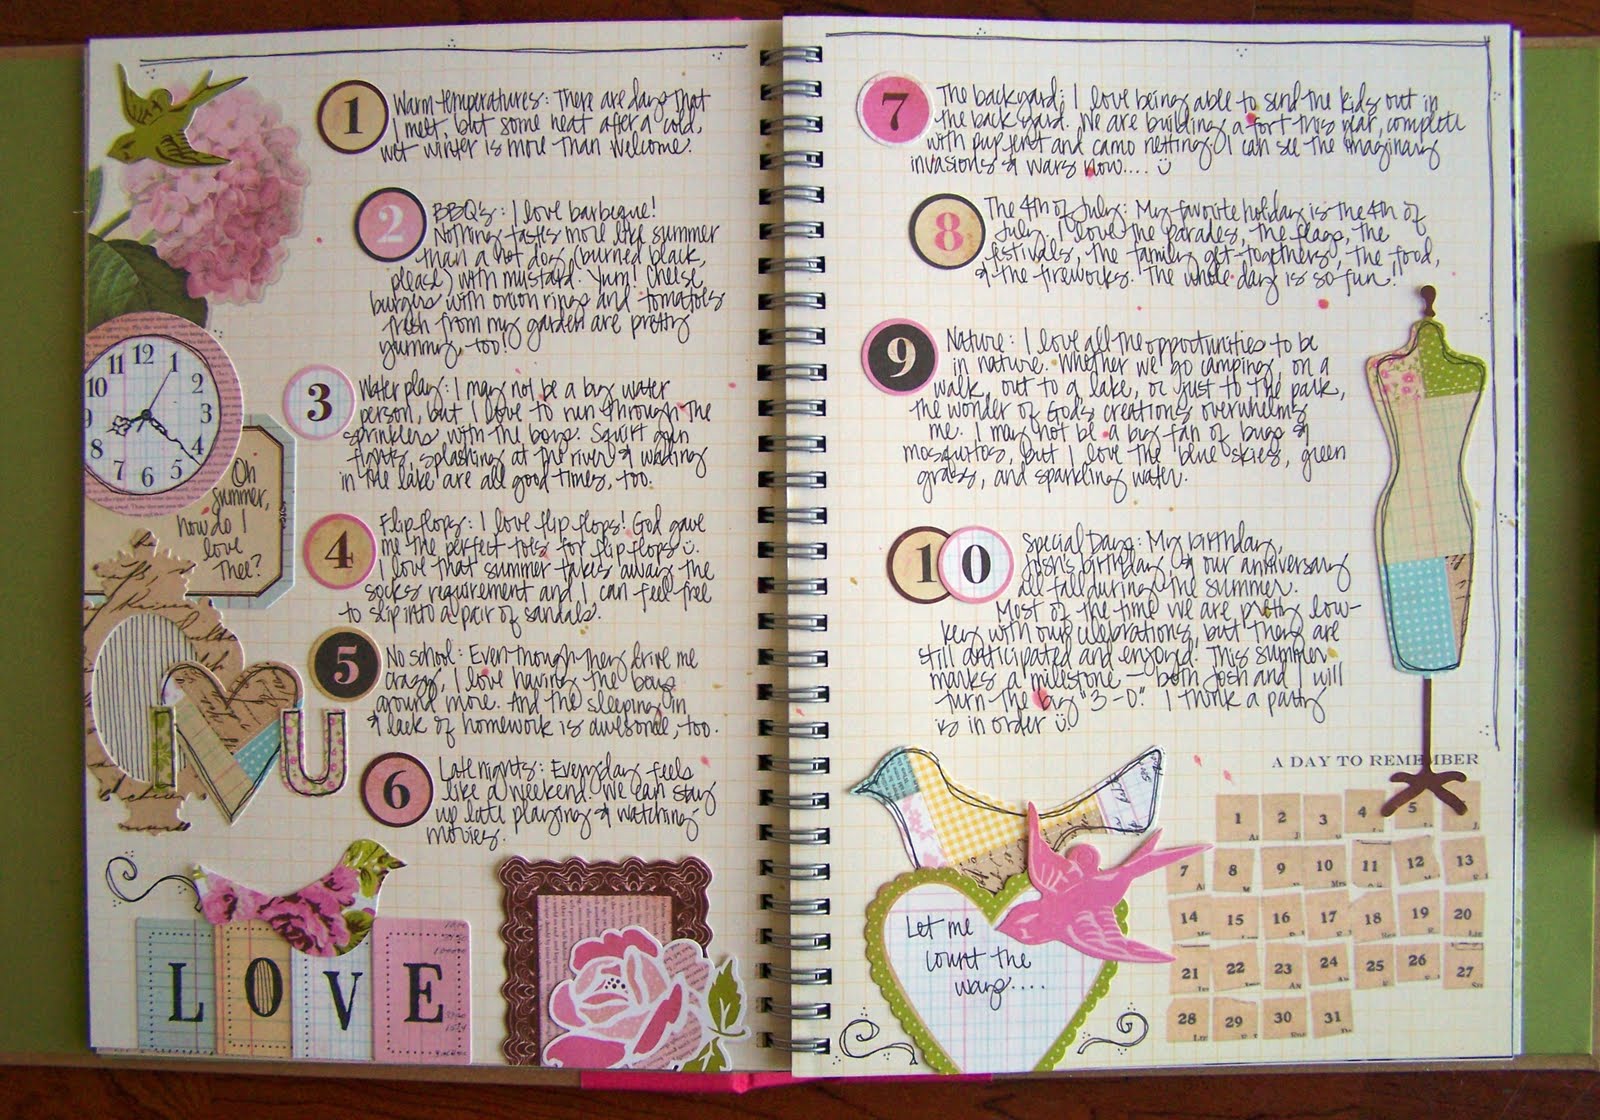 1
Warm temperatures: There are days that
I melt, but some heat after a cold,
wet winter is more than welcome.
2
BBQ's: I love barbeque!
Nothing tastes more like summer
than a hot dog (burned black,
please) with mustard. Yum! Cheese
burgers with onion rings and tomatoes
fresh from my garden are pretty
yummy, too!
3
Water play: I may not be a big water
person, but I love to run through the
sprinklers with the boys. Squirt gun
fights, splashing at the river & wading
in the lake are all good times, too.
4
Flip flops: I love flip flops! God gave
me the perfect toes for flip flops.
I love that summer takes away the
socks requirement and I can feel free
to slip into a pair of sandals.
5
No school: Even though they drive me
crazy, I love having the boys
around more. And the sleeping in
& lack of homework is awesome, too.
6
Late nights: Everyday feels
like a weekend. We can stay
up late playing & watching
movies.
12
11 1
10 2
9 3
8 4
7 6 5
Oh
summer,
how do I
love
Thee?
I U
LOVE
7
The backyard: I love being able to send the kids out in
the back yard. We are building a fort this year, complete
with pup tent and camo netting. I can see the imaginary
invasions & wars now....
8
The 4th of July: My favorite holiday is the 4th of
July. I love the parades, the flags, the
festivals, the family get-togethers, the food,
& the fireworks. The whole day is so fun!
9
Nature: I love all the opportunities to be
in nature. Whether we go camping, on a
walk, out to a lake, or just to the park,
the wonder of God's creations overwhelms
me. I may not be a big fan of bugs &
mosquitos, but I love the blue skies, green
grass, and sparkling water.
10
Special Days: My birthday,
Josh's birthday & our anniversary
all fall during the summer.
Most of the time we are pretty low-
key with our celebrations, but there are
still anticipated and enjoyed. This summer
marks a milestone - both Josh and I will
turn the big "3-0." I think a party
is in order
Let me
count the
ways....
A DAY TO REMEMBER
1 2 3 4 5
7 8 9 10 11 12 13
14 15 16 17 18 19 20
21 22 23 24 25 26 27
28 29 30 31